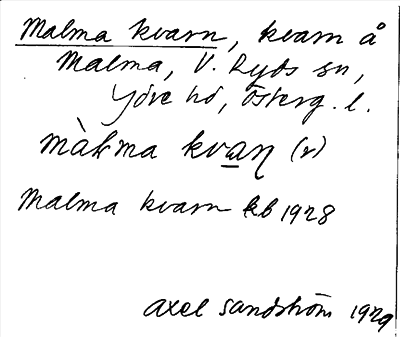 Malma kvarn, kvarn å
Malma, V. Ryds sn,
Ydre hd, Österg. l.
màɫma kvaɳ (r)
Malma kvarn kb 1928
Axel Sandström 1929